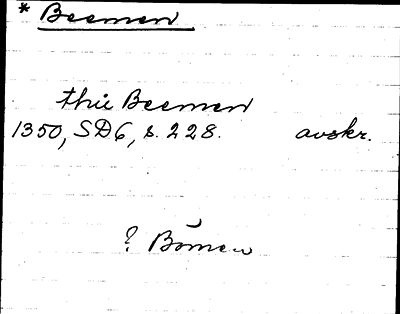 * Beemen
thie Beemen
1350, SD6, s. 228. avskr.
? Bömen